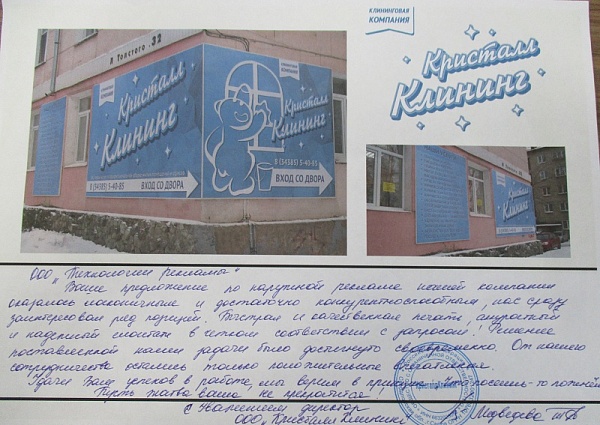 КЛИНИНГОВАЯ
КОМПАНИЯ
Кристалл
Клининг
Л Толстого .32
КЛИНИНГОВАЯ
КОМПАНИЯ
Кристалл
Клининг
8 (34385) 5-40-85
ВХОД СО ДВОРА
Кристалл
Клининг
8 (34385) 5-40-85
ВХОД СО ДВОРА
Кристалл
Клининг
ООО "Технологии рекламы"
Ваше предложение по наружной рекламе нашей компании
оказалось лаконичным и достаточно конкурентноспособным, нас сразу
заинтересовал ряд позиций. Быстрая и качественная печать, шустрый
и надежный монтаж в четком соответствии с запросом! Решение
поставленной нами задачи было достигнуто своевременно. От нашего
сотрудничества остались только положительные впечатления.
Удачи Вам успехов в работе, мы верим в принцип "что посеешь-то пожнёшь"
Пусть жатва ваша не прекратится
С Уважением директор
ООО "Кристалл Клининг" Медведева